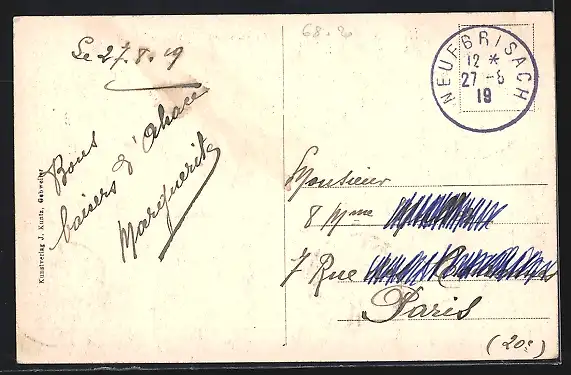 Le 27.8.19
68.
NEUFBRISACH
12 *
27 -8
19
Bons
baisers d'Alsace
Marguerite
Monsieur
8 Mme
7 Rue
Paris
(20e)
Kunstverlag J. Kuntz, Gebweiler